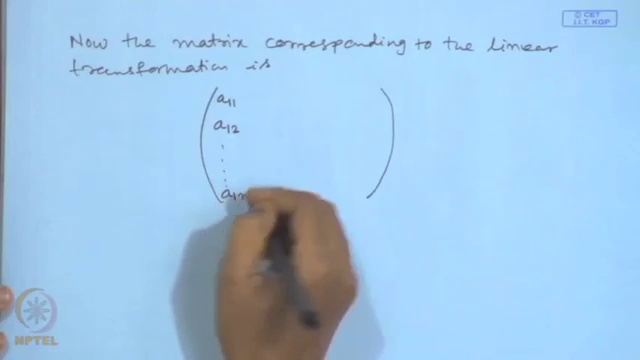 © CET
I.I.T. KGP
Now the matrix corresponding to the linear
transformation is
a11
a12
NPTEL